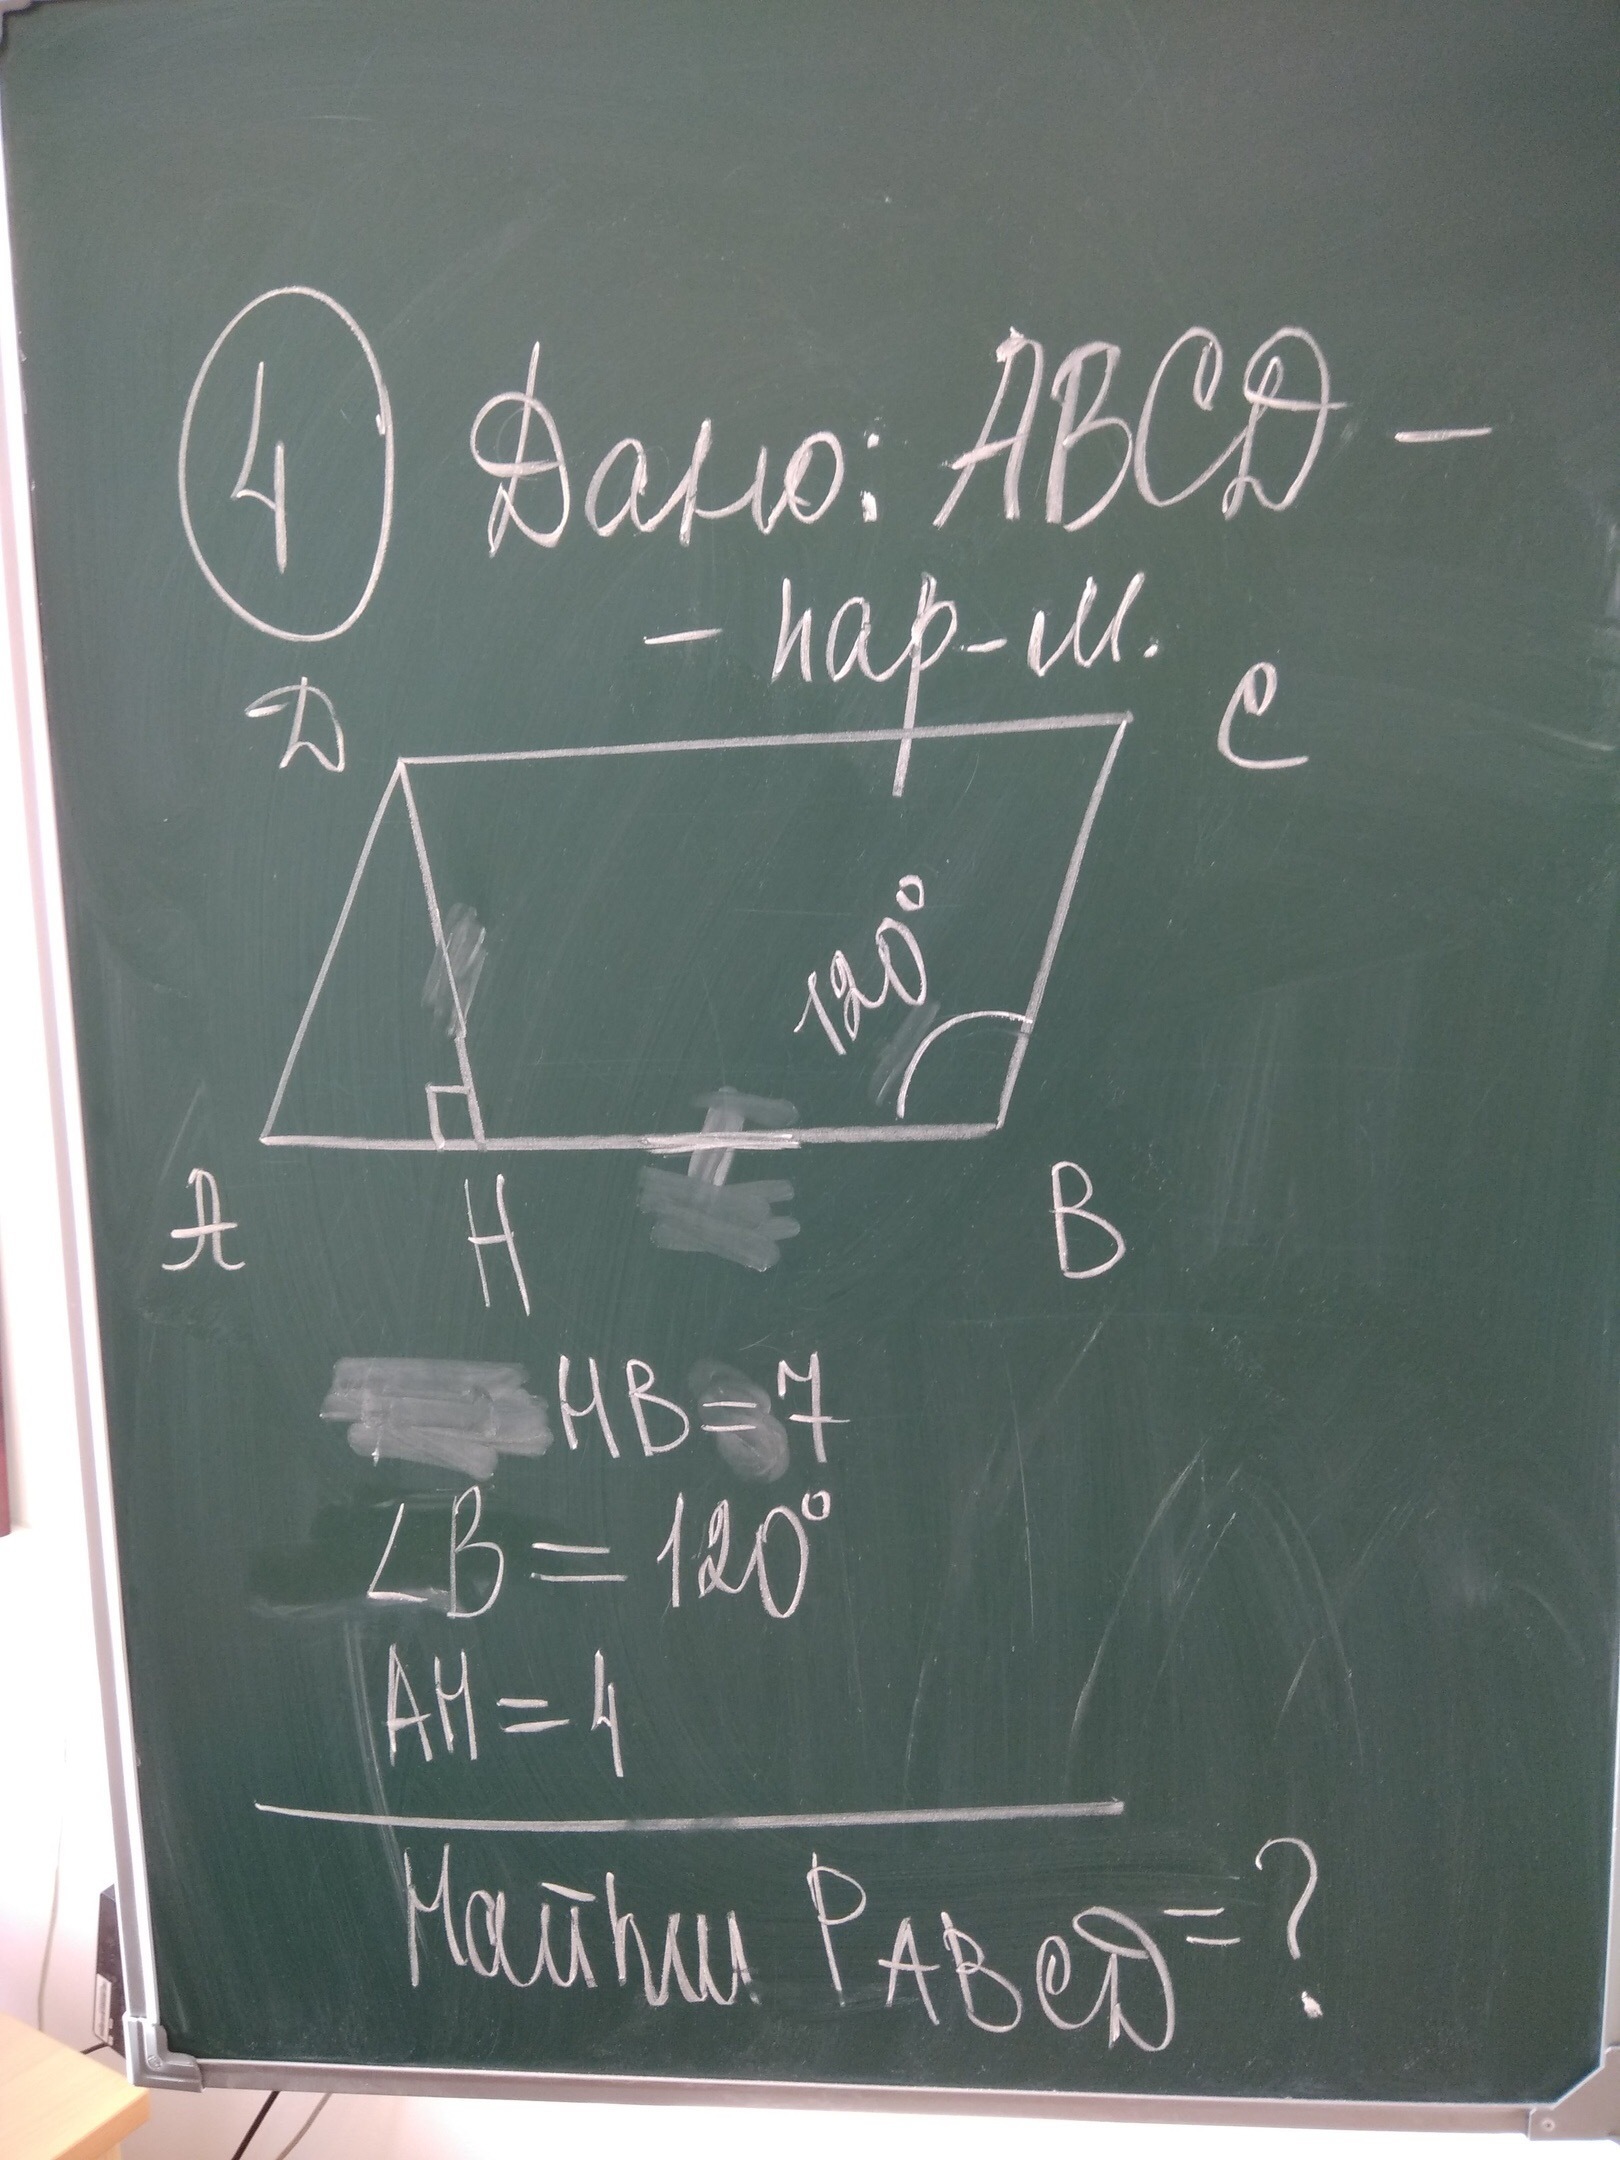 4 Дано: ABCD -
- пар-м.
D C
120°
A H B
HB = 7
∠B = 120°
AH = 4
Найти P ABCD = ?